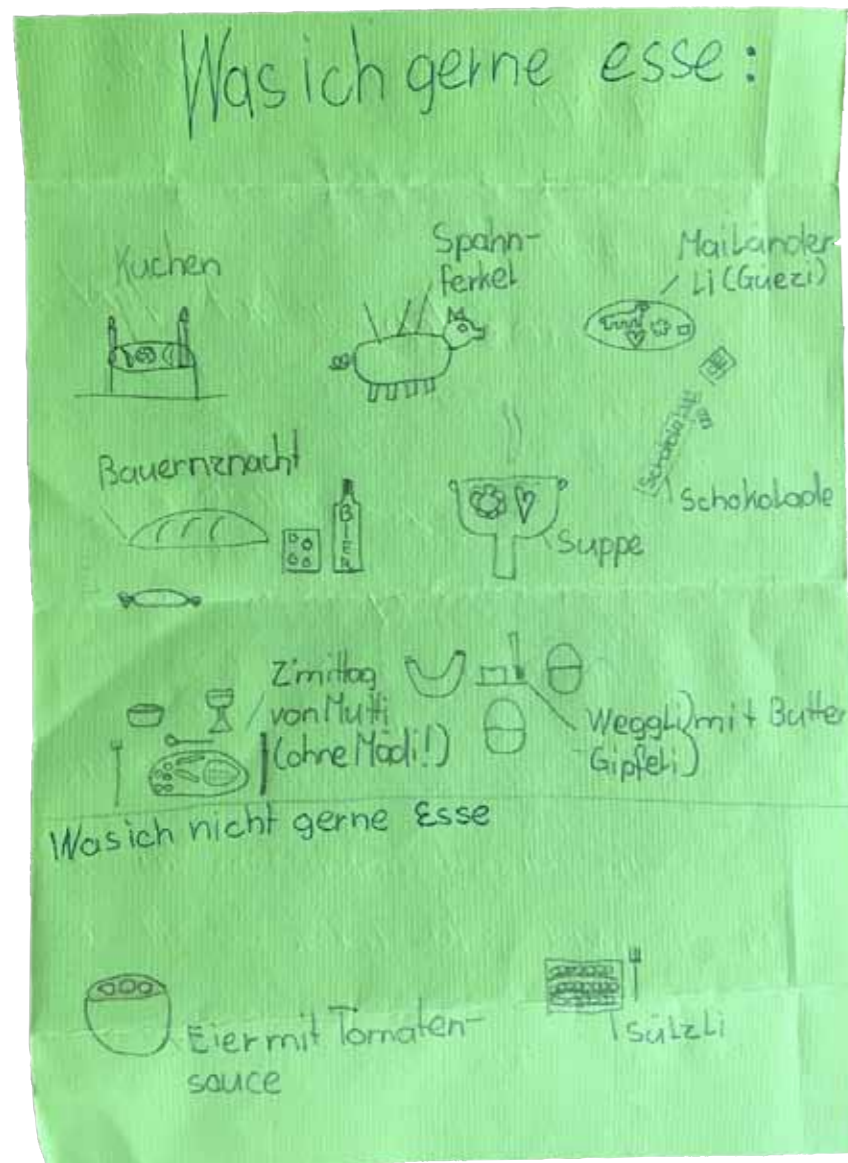 Was ich gerne esse:
Kuchen
Spahn-
ferkel
Mailänder-
li (Güezi)
Bauernznacht
BIER
Schokolade
Schokolade
Suppe
Z'mittag
von Mutti
(ohne Mädi!)
Weggli) mit Butter
Gipfeli)
Was ich nicht gerne Esse
Eier mit Tomaten-
sauce
Sülzli